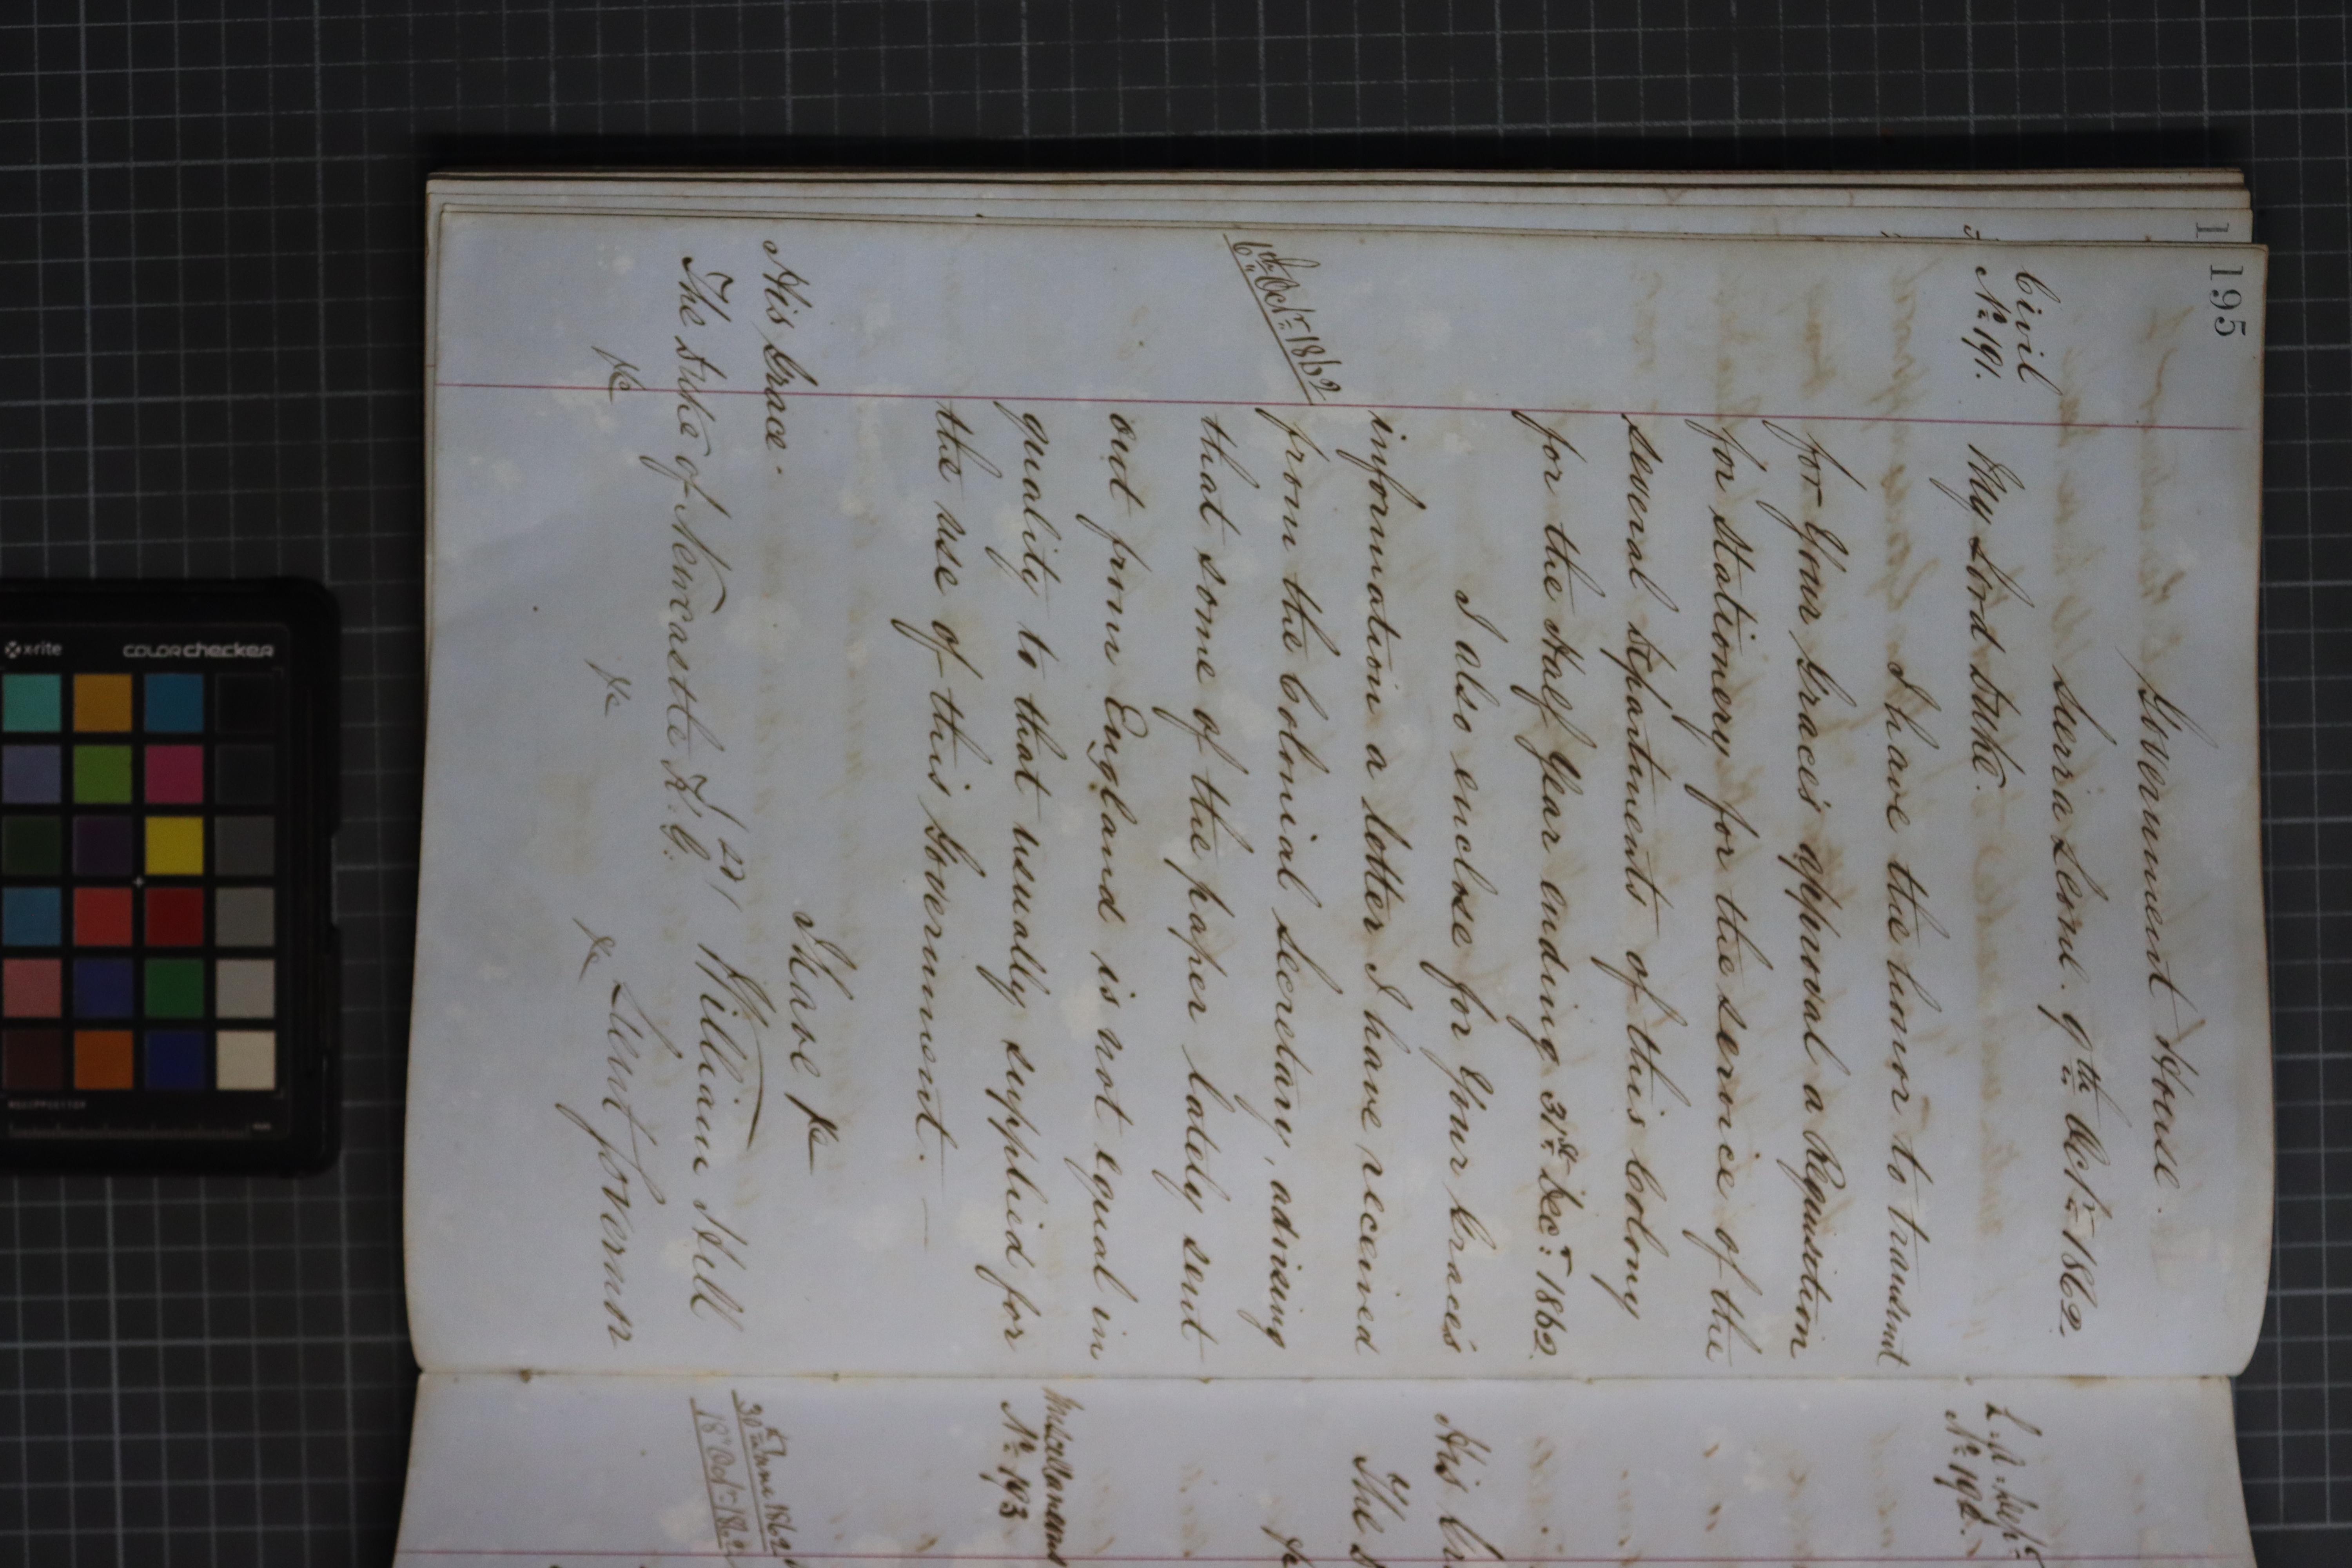 195
Government House.
Sierra Leone. 9th Octr 1862.
Civil
No 191.
My Lord Duke.
I have the honor to transmit
for Your Grace's approval a Requisition
for Stationery for the service of the
several Departments of this Colony
for the Half Year ending 31st Decr 1862.
I also enclose for Your Grace's
information a letter I have received
6th Octr 1862
from the Colonial Secretary, advising
that some of the paper lately sent
out from England is not equal in
quality to that usually supplied for
the use of this Government. —
I have &c
His Grace.
William Hill
The Duke of Newcastle K.G.
Lieut Governor
&c &c &c
No 192.
His
The
Miscellaneous
No 193
30th June 1862
18th Octr 1862
x-rite
colorchecker